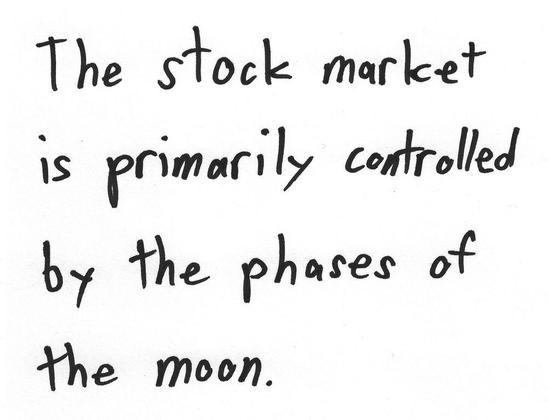 The stock market
is primarily controlled
by the phases of
the moon.